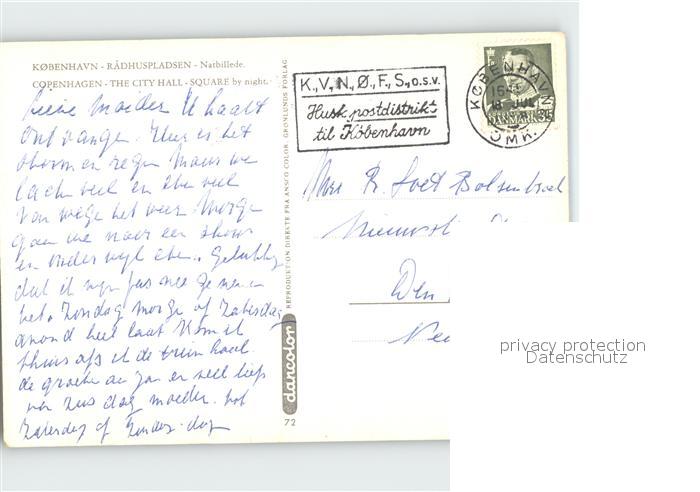 KØBENHAVN - RÅDHUSPLADSEN - Natbillede.
COPENHAGEN - THE CITY HALL - SQUARE by night.
Lieve Moeder U kaart
ontvangen. Hier is het
storm en regen Maar we
lache veel en veel
van wege het weer Morge
gaan we naar een show
en onder wyl. Gelukkig
dat ik myn jas mee genomen
heb. Zondag morge of Zaterdag
avond heel laat kom ik
thuis als ik de trein haal
de groete aan Jan en veel liefs
van zus dag moeder. tot
Zaterdag of Zondag. dag
REPRODUKTION DIREKTE FRA ANSCO COLOR. GRØNLUNDS FORLAG
dancolor
72
K., V., N., Ø., F., S., o.s.v.
Husk postdistrikt
til København
KØBENHAVN
OMK.
18 JUL
DANMARK 35
Mevr
Nieuwst
Den
Ne
privacy protection
Datenschutz